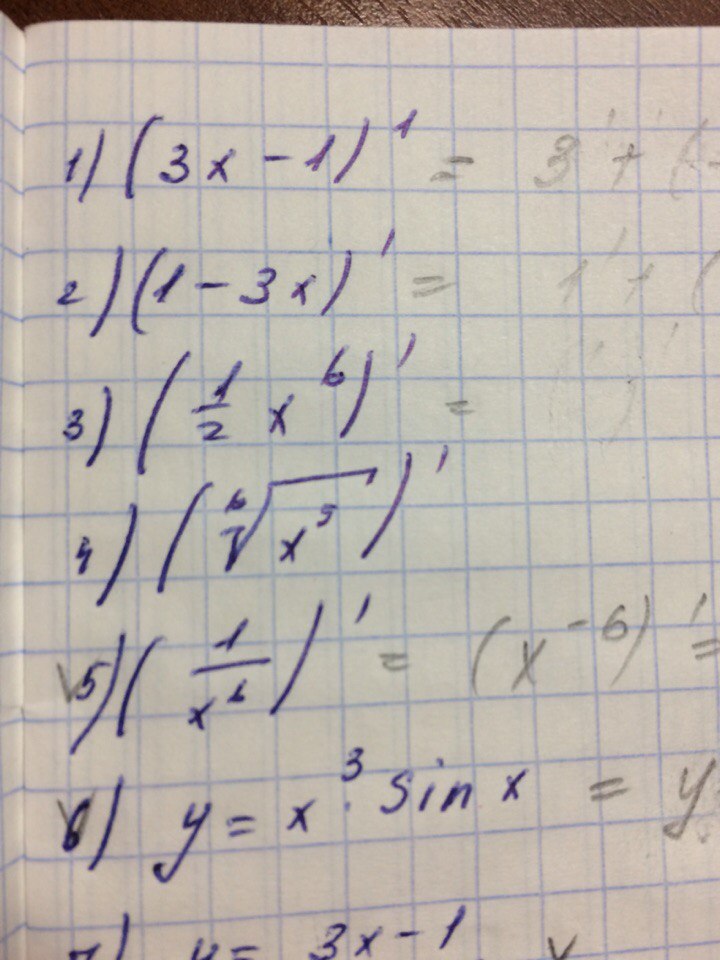 1) (3x - 1)' = 3' + (
2) (1 - 3x)' = 1' + (
3) (1/2 x^6)' =
4) (⁶√x^5)'
5) (1/x^6)' = (x^-6)' =
6) y = x^3 · sin x = y
7) y = 3x - 1